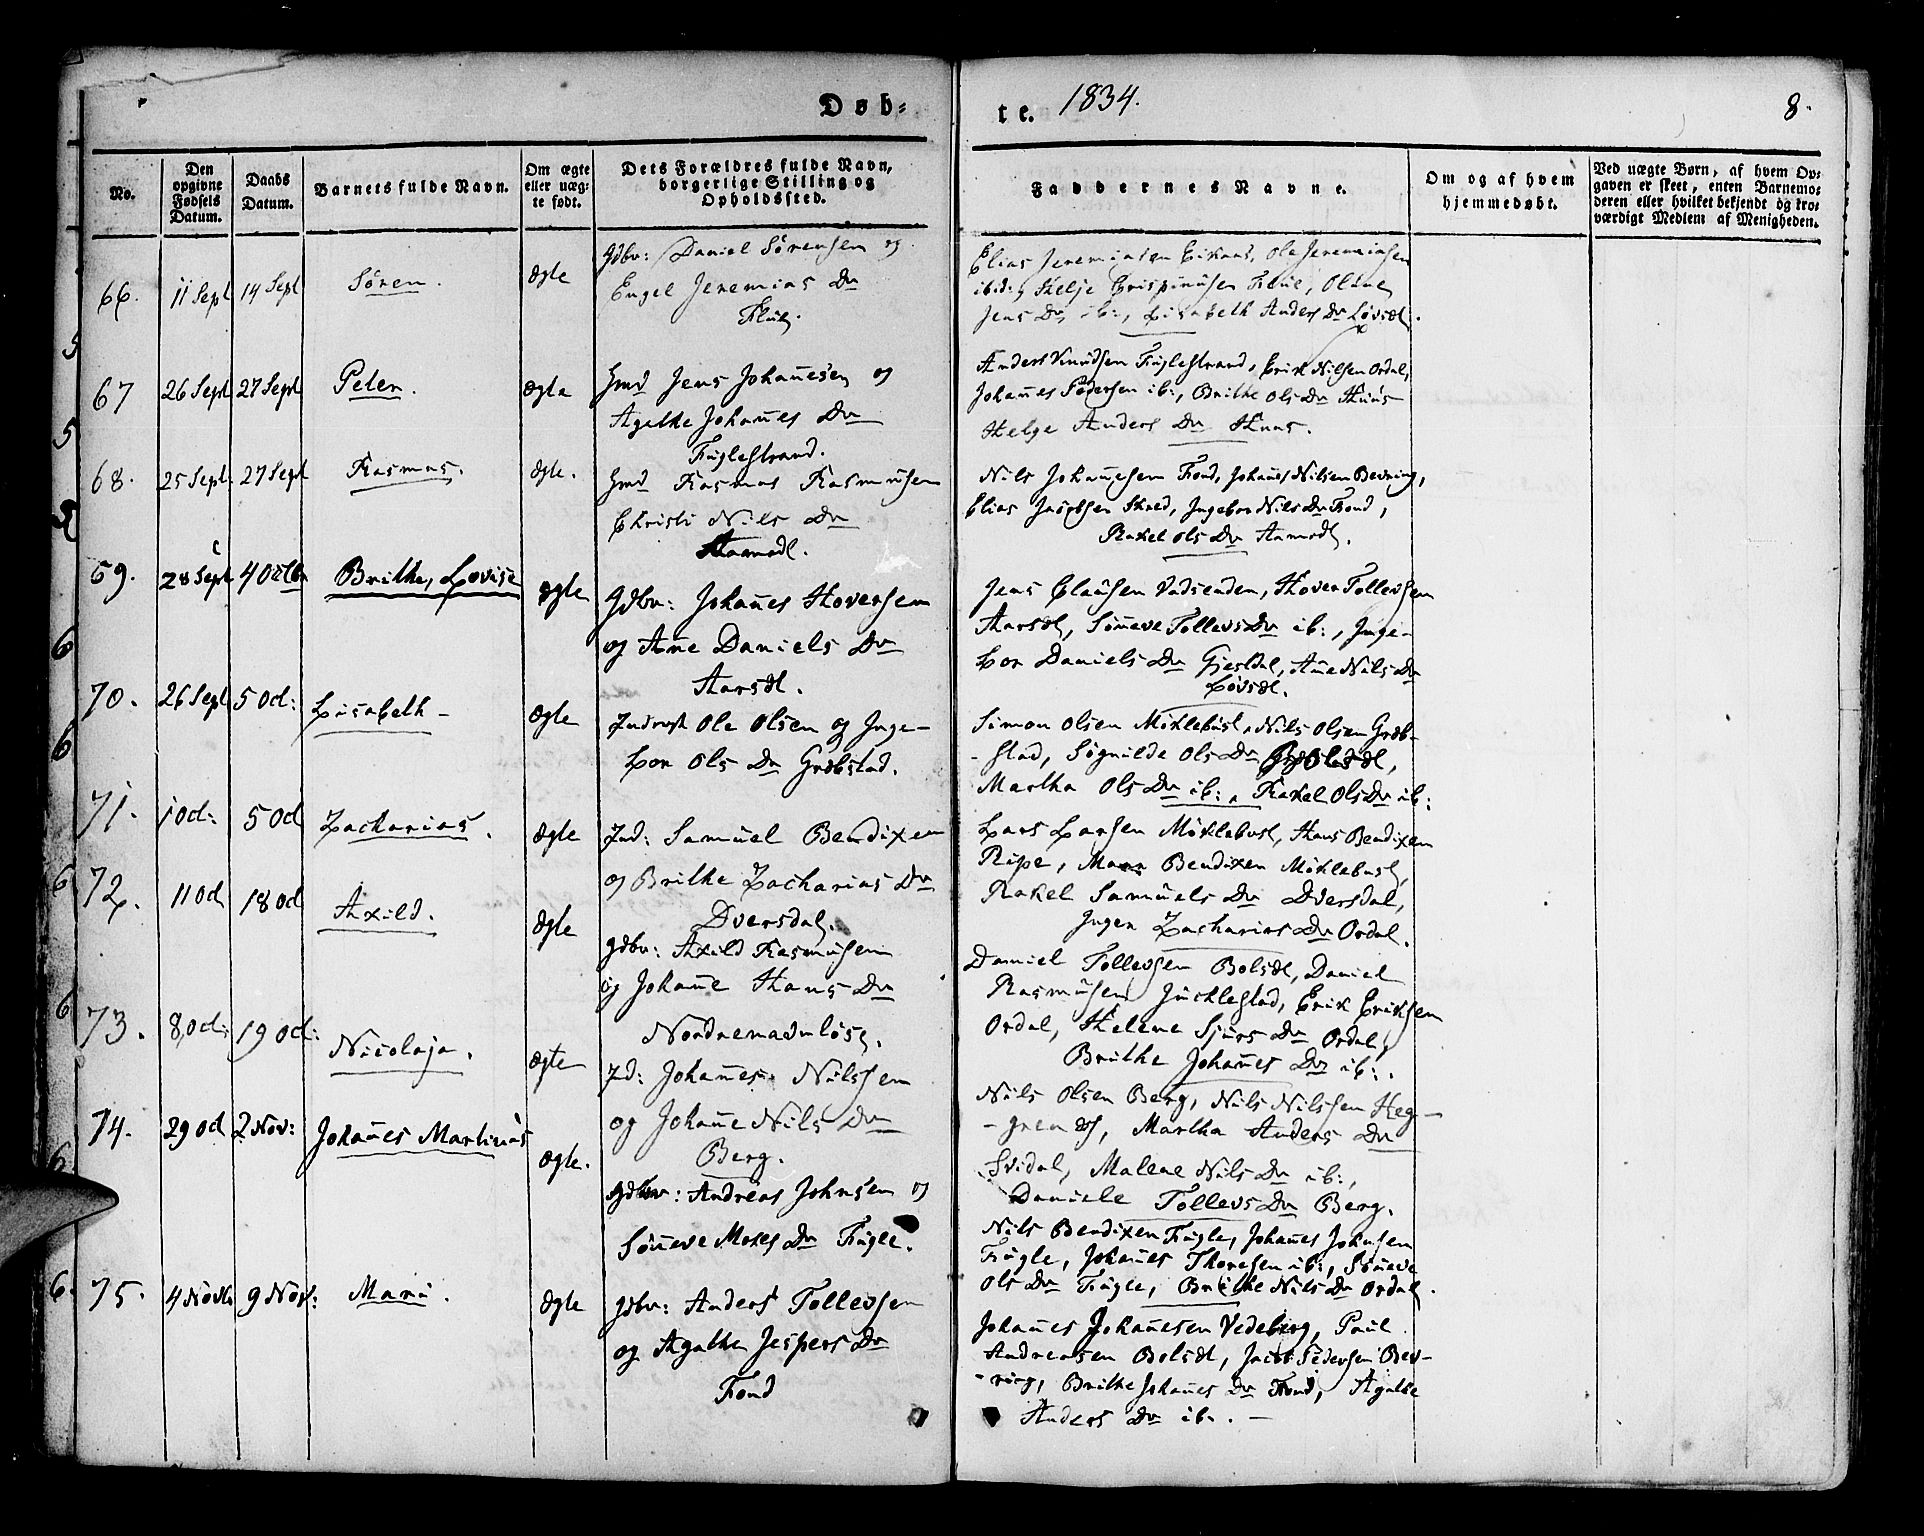 Døb-
te. 1834.
8.
No.
Den opgivne Fødsels Datum.
Daabs Datum.
Barnets fulde Navn.
Om ægte eller uægte født.
Dets Forældres fulde Navn, borgerlige Stilling og Opholdssted.
Faddernes Navne.
Om og af hvem hjemmedøbt.
Ved uægte Børn, af hvem Opgaven er skeet, enten Barnemoderen eller hvilket bekjendt og troværdigt Medlem af Menigheden.
66. 11 Sept 14 Sept Sören. Ægte
Gdbr: Daniel Sörensen og
Engel Jeremias Dr
Flue.
Elias Jeremiasen Eikaas, Ole Jeremiasen
ibid:, Helje Crispinusen Flue, Oline
Jens Dr ib:, Lisabeth Anders Dr Lövsdl.
67 26 Sept 27 Sept Peter. Ægte
Hmd Jens Johannesen og
Agathe Johannes Dr
Fuglestrand.
Anders Knudsen Fuglestrand, Erik Nilsen Ordal,
Johannes Pedersen ib:, Brithe Ols Dr Huus
Helge Anders Dr Huus.
68. 25 Sept: 27 Sept Rasmus. Ægte.
Hmd Rasmus Rasmusen
Christi Nils Dr
Aamodt.
Nils Johannesen Fond, Johannes Nilsen Bevring,
Elias Jacobsen Skred, Ingebor Nils Dr Fond,
Rakel Ols Dr Aamodt.
69. 28 Sept 4 Octbr Brithe, Lovise Ægte
Gdbr: Johannes Hoversen
og Anne Daniels Dr
Aarsdl.
Jens Clausen Vadsenden, Hover Tollevsen
Aarsdl, Sönneve Tollevs Dr ib:, Inge-
bor Daniels Dr Gjesdal, Anne Nils Dr
Lövsdl.
70. 26 Sept 5 Oct: Lisabeth - Ægte
Inderst Ole Olsen og Inge-
bor Ols Dr Grøbstad.
Simon Olsen Möklebust, Nils Olsen Grøb-
-stad, Sögnilde Ols Dr
Martha Ols Dr ib:, Rakel Ols Dr ib:
71. 1 Oct: 5 Oct Zacharias. Ægte
Ind: Samuel Bendixen
og Brithe Zacharias Dr
Dversdal.
Lars Larsen Möklebust, Hans Bendixen
Ripe, Mons Bendixen Möklebust,
Rakel Samuels Dr Dversdal,
Inger Zacharias Dr Ordal.
72. 11 Oct 18 Oct Axild. Ægte
Gdbr: Axild Rasmusen
og Johanne Hans Dr
Daniel Tollevsen Bolsdl, Daniel
Rasmusen Juckelstad, Erik Eriksen
Ordal, Helene Sjurs Dr Ordal,
Brithe Johannes Dr ib:.
73. 8 Oct: 19 Oct: Nicolaja. Ægte
Id: Johannes Nilssen
og Johanne Nils Dr
Berg.
Nils Olsen Berg, Nils Nilssen Heg-
Martha Anders Dr
Svidal, Malene Nils Dr ib:,
Daniele Tollevs Dr Berg.
74. 29 Oct 2 Nov: Johannes Martinus Ægte.
Gdbr: Andreas Johnsen og
Sönneve Moses Dr Fugle.
Nils Bendixen Fugle, Johannes Johnsen
Fugle, Johannes Thoresen ib:, Sönneve
Ols Dr Fugle, Brithe Nils Dr Ordal.
75. 4 Novb: 9 Nov: Mari. Ægte
Gdbr: Anders Tollevsen
og Agathe Jespers Dr
Fond
Johannes Johannesen Vedeberg, Paul
Andreasen Bolsdl, Jacob Pedersen Bev-
-ring, Brithe Johannes Dr Fond, Agathe
Anders Dr ib. -